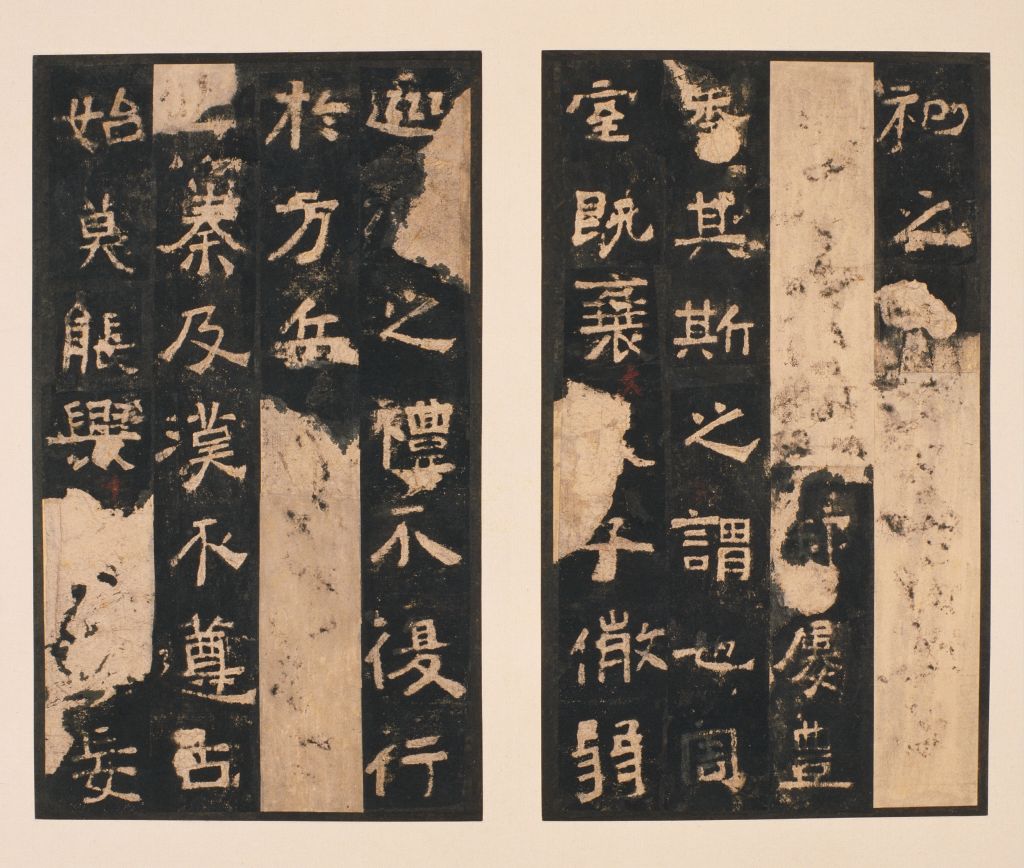 祀之
屢豐
香其斯之謂也周
室既衰子微弱
巡之禮不復行
於方岳
秦及漢不遵古
始莫能興妄